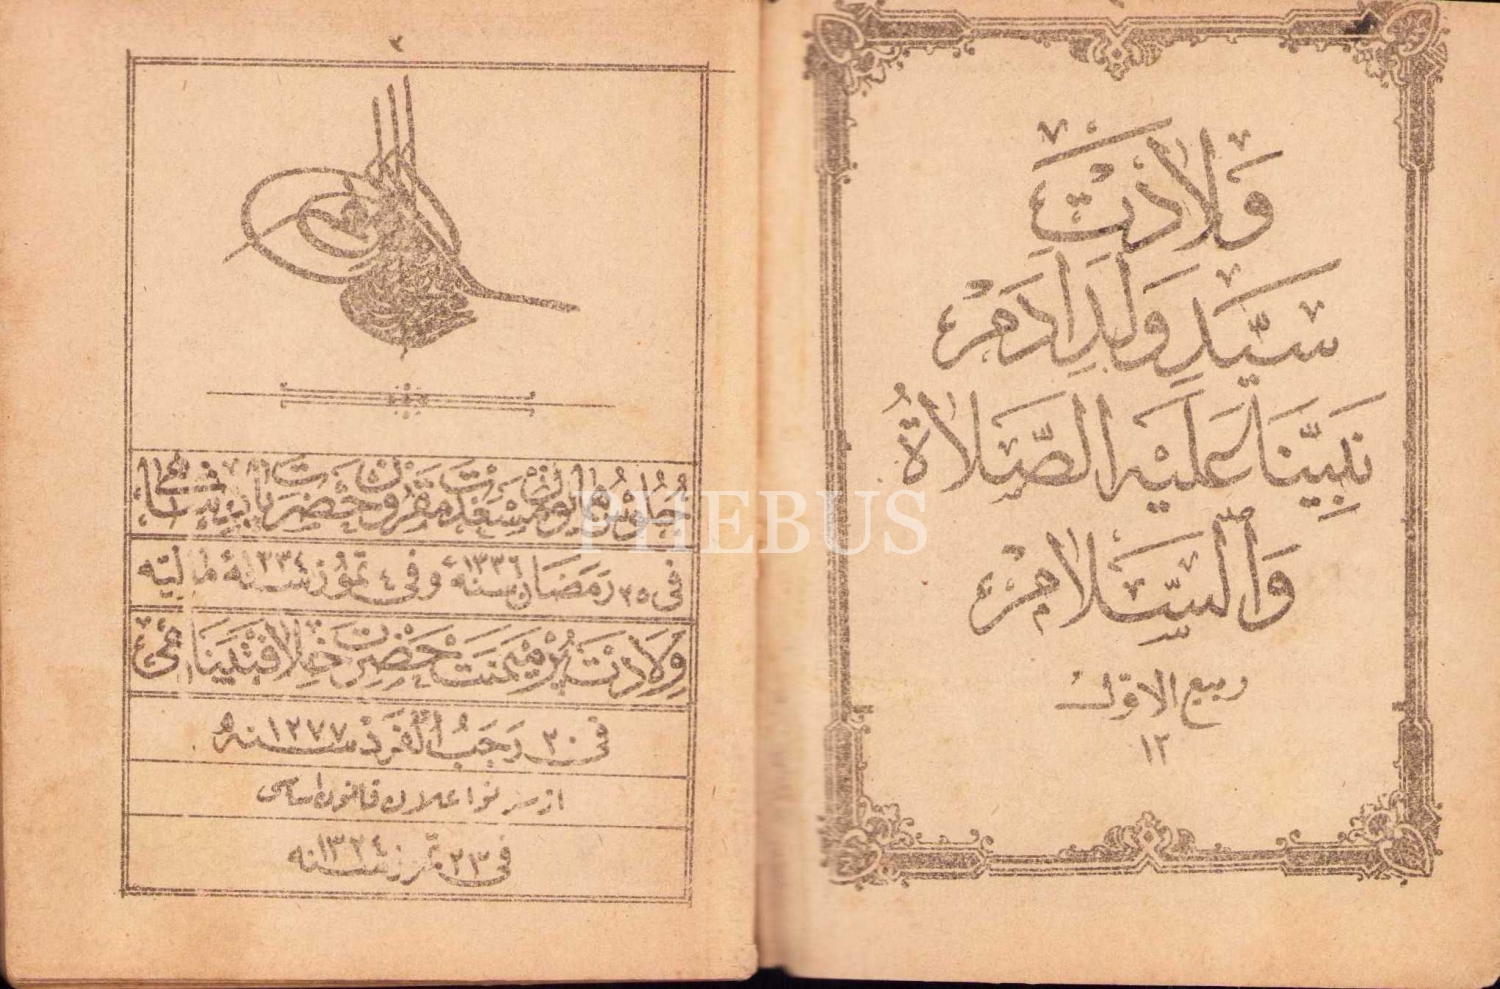 ولادت
سيد ولد آدم
نبينا عليه الصلاة
والسلام
ربيع الاول
١٢
٢
جلوس همايون ميمنت مقرون حضرت پادشاهى
فى ٢٥ رمضان سنه ١٣٣٦ و فى ٤ تموز سنه ١٣٣٤ ماليه
ولادت پر ميمنت حضرت خلافتپناهى
فى ٢٠ رجب الفرد سنه ١٢٧٧
از سر نو اعلان قانون اساسى
فى ٢٣ تموز سنه ١٣٢٤
PHEBUS